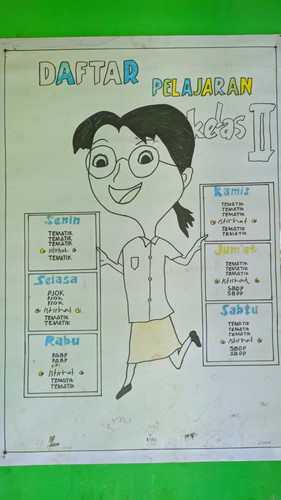 DAFTAR
PELAJARAN
kelas II
Senin
TEMATIK
TEMATIK
TEMATIK
istirhat
TEMATIK
Selasa
PJOK
PJOK
PJOK
istirhat
TEMATIK
TEMATIK
Rabu
PABP
PABP
istirhat
TEMATIK
TEMATIK
Kamis
TEMATIK
TEMATIK
TEMATIK
istirhat
TEMATIK
TEMATIK
Jum'at
TEMATIK
TEMATIK
TEMATIK
istirhat
SBDP
SBDP
Sabtu
TEMATIK
TEMATIK
TEMATIK
istirhat
SBDP
SBDP